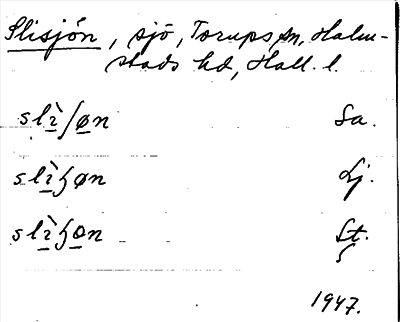 Slisjön, sjö, Torups sn, Halm-
stads hd, Hall. l.
slì̱/ø̱n Sa.
slì̱ʒøn Lj.
slì̱ʒo̱n St.
1947.